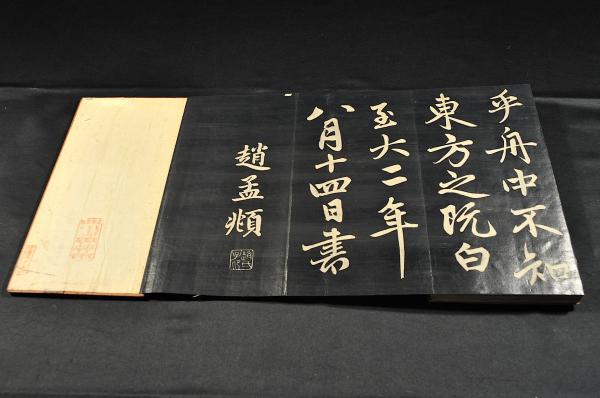 乎舟中不知
東方之既白
至大二年
八月十四日書
趙孟頫